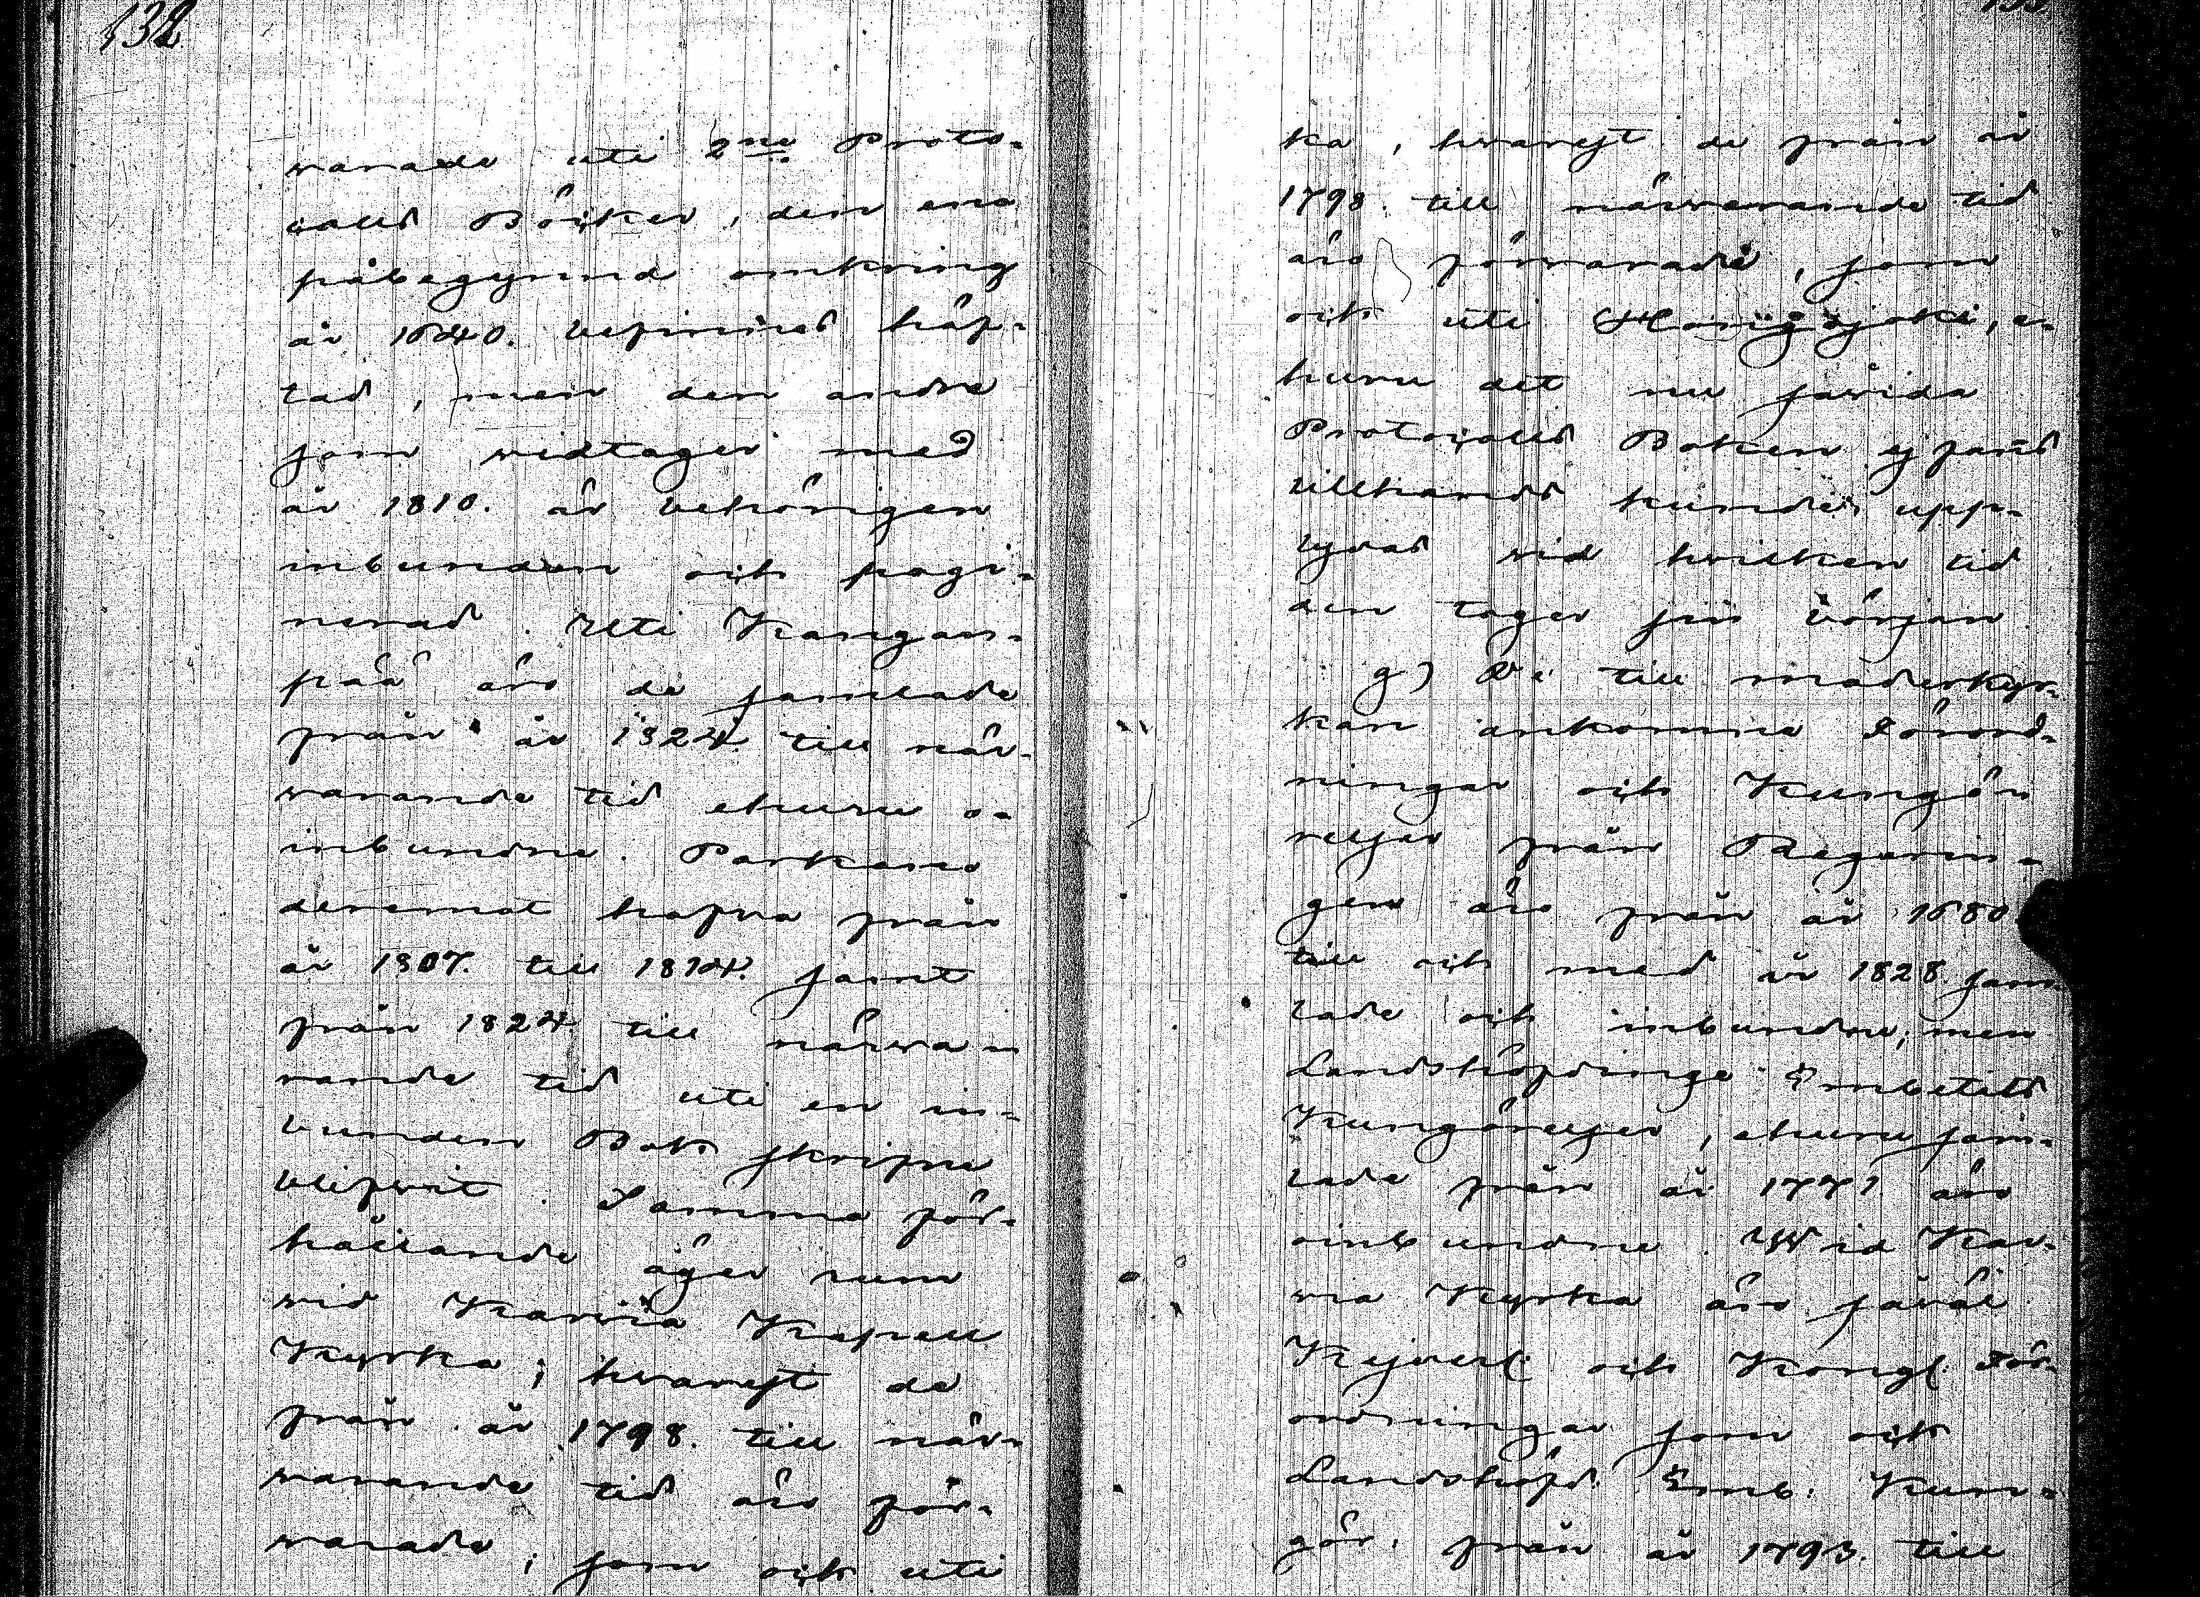 132
varade uti 2ne Proto-
colls Böcker, den ena
påbegynnd omkring
år 1640. befinnes häf-
tad, men den andre
som vidtager med
år 1810. är behörigen
inbunden och pagi-
nerad. Uti Kangan-
pää äro de samlade
från år 1824. till när-
varande tid ehuru o-
inbundne. Parkano
deremot hafva från
år 1807. till 1814. samt
från 1824 till närva-
rande tid uti en in-
bunden Bok skrifne
blifvit. Samma för-
hållande äger rum
vid Karvia Kapell
Kyrka; hvarest de
från år 1798. till när-
varande tid äro för-
varade; som och uti
ka, hvarest de från år
1798. till närvarande tid
äro förvarade, som
och uti Hongojoki, e-
huru det nu såvida
Protocolls Boken ej fans
tillhands kunde upp-
lysas vid hvilken tid
den tager sin början
g) De till moderkyr-
kan ankomne Förord-
ningar och Kungö-
relser från Regerin-
gen äro från år 1680
till och med år 1828 sam-
lade och inbundne; men
Landshöfdinge Embetets
Kungörelser, ehuru sam-
lade från år 1771 äro
oinbundne. Wid Kar-
via Kyrka äro såväl
Kejserl: och Kongl: För-
ordningar som och
Landshöfd: Emb: Kun-
gör: från år 1793. till